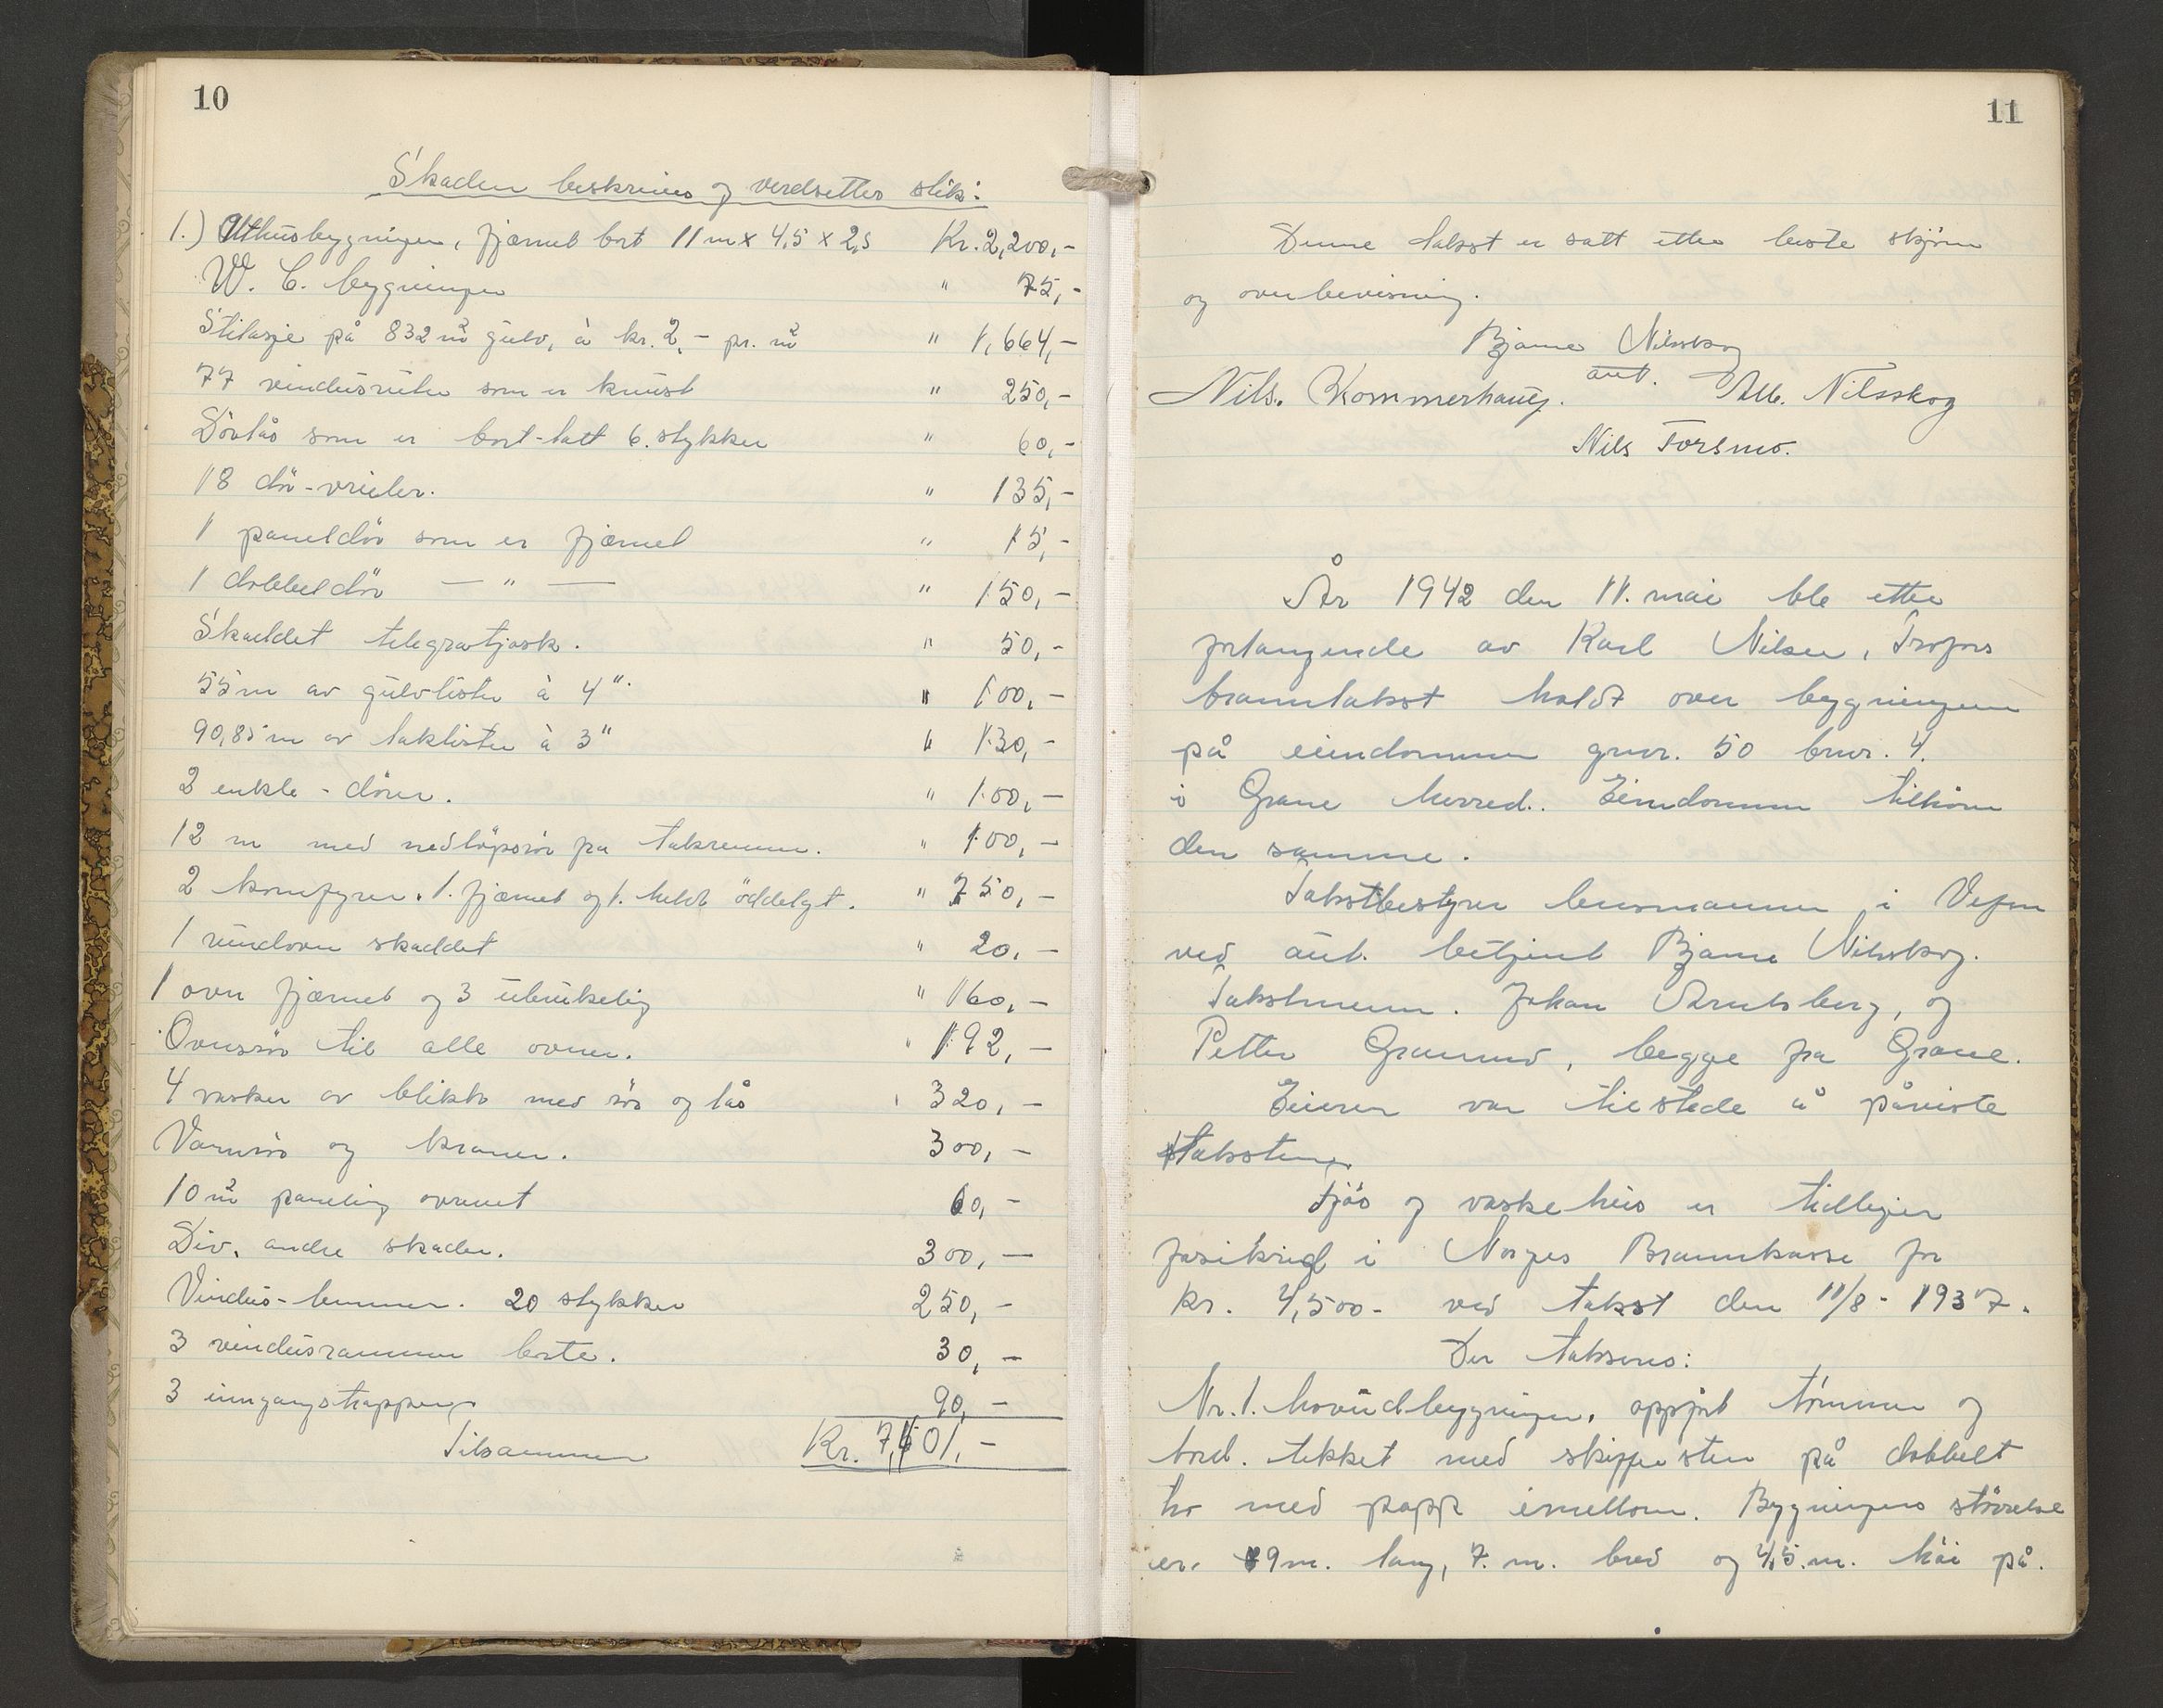 10
Skaden beskrives og verdsettes slik:
1.) Uthusbygningen, fjærnet bort 11 m x 4,5 x 2,5 Kr. 2,200,-
W. C. bygningen " 75,-
Stilasje på 832 m² gulv, à kr. 2,- pr. m² " 1,664,-
77 vindusruter som er knust " 250,-
Dörlås som er bort-tatt 6. stykker " 60,-
18 dör-vrider. " 135,-
1 paneldör som er fjærnet " 15,-
1 dobbeldör — " — " 150,-
Skaddet telegrafjask. " 50,-
55 m av gulvlister à 4". " 100,-
90,85 m av taklister à 3" " 130,-
2 enkle - dörer. " 100,-
12 m med nedlöpsrör fra takrenner. " 100,-
2 komfyrer. 1. fjærnet og 1. heldt öddelgt. " 750,-
1 rundovn skaddet " 20,-
1 ovn fjærnet og 3 ubrukelig " 160,-
Ovnsrör til alle ovner. " 192,-
4 vasker av blikk med rör og lås " 320,-
Vannrör og kraner. 300,-
10 m² paneling 60,-
Div. andre skader. 300,-
Vindus-lemmer. 20 stykker 250,-
3 vindusrammer borte. 30,-
3 inngangstrapper 90,-
Tilsammen Kr. 7,401,-
11
Denne takst er satt etter beste skjönn
og overbevisning.
Bjarne Nilsskog
aut.
Nils. Kommerhaug. Alb. Nilsskog
Nils Forsmo.
År 1942 den 11. mai ble etter
forlangende av Karl Nilsen, Trofors
branntakst holdt over bygningene
på eiendommen gnr. 50 bnr. 4.
i Grane herred. Eiendommen tilhörer
den samme.
Takstbestyrer lensmannen i Vefsn
ved aut. betjent Bjarne Nilsskog.
Takstmenn. Johan Arntsberg, og
Petter Granmo, begge fra Grane.
Eieren var tilstede å påviste
taksten.
Fjös og vaskehus er tidligere
forsikred i Norges Brannkasse for
kr. 4,500- ved takst den 11/8- 1937.
Der takseres:
Nr. 1. hovudbygningen, oppfört tömmer og
bord. tekket med skiffersten på dobbelt
tro med papp imellom. Bygningens störrelse
er. 9 m. lang, 7. m. bred og 4,5. m. höi på.